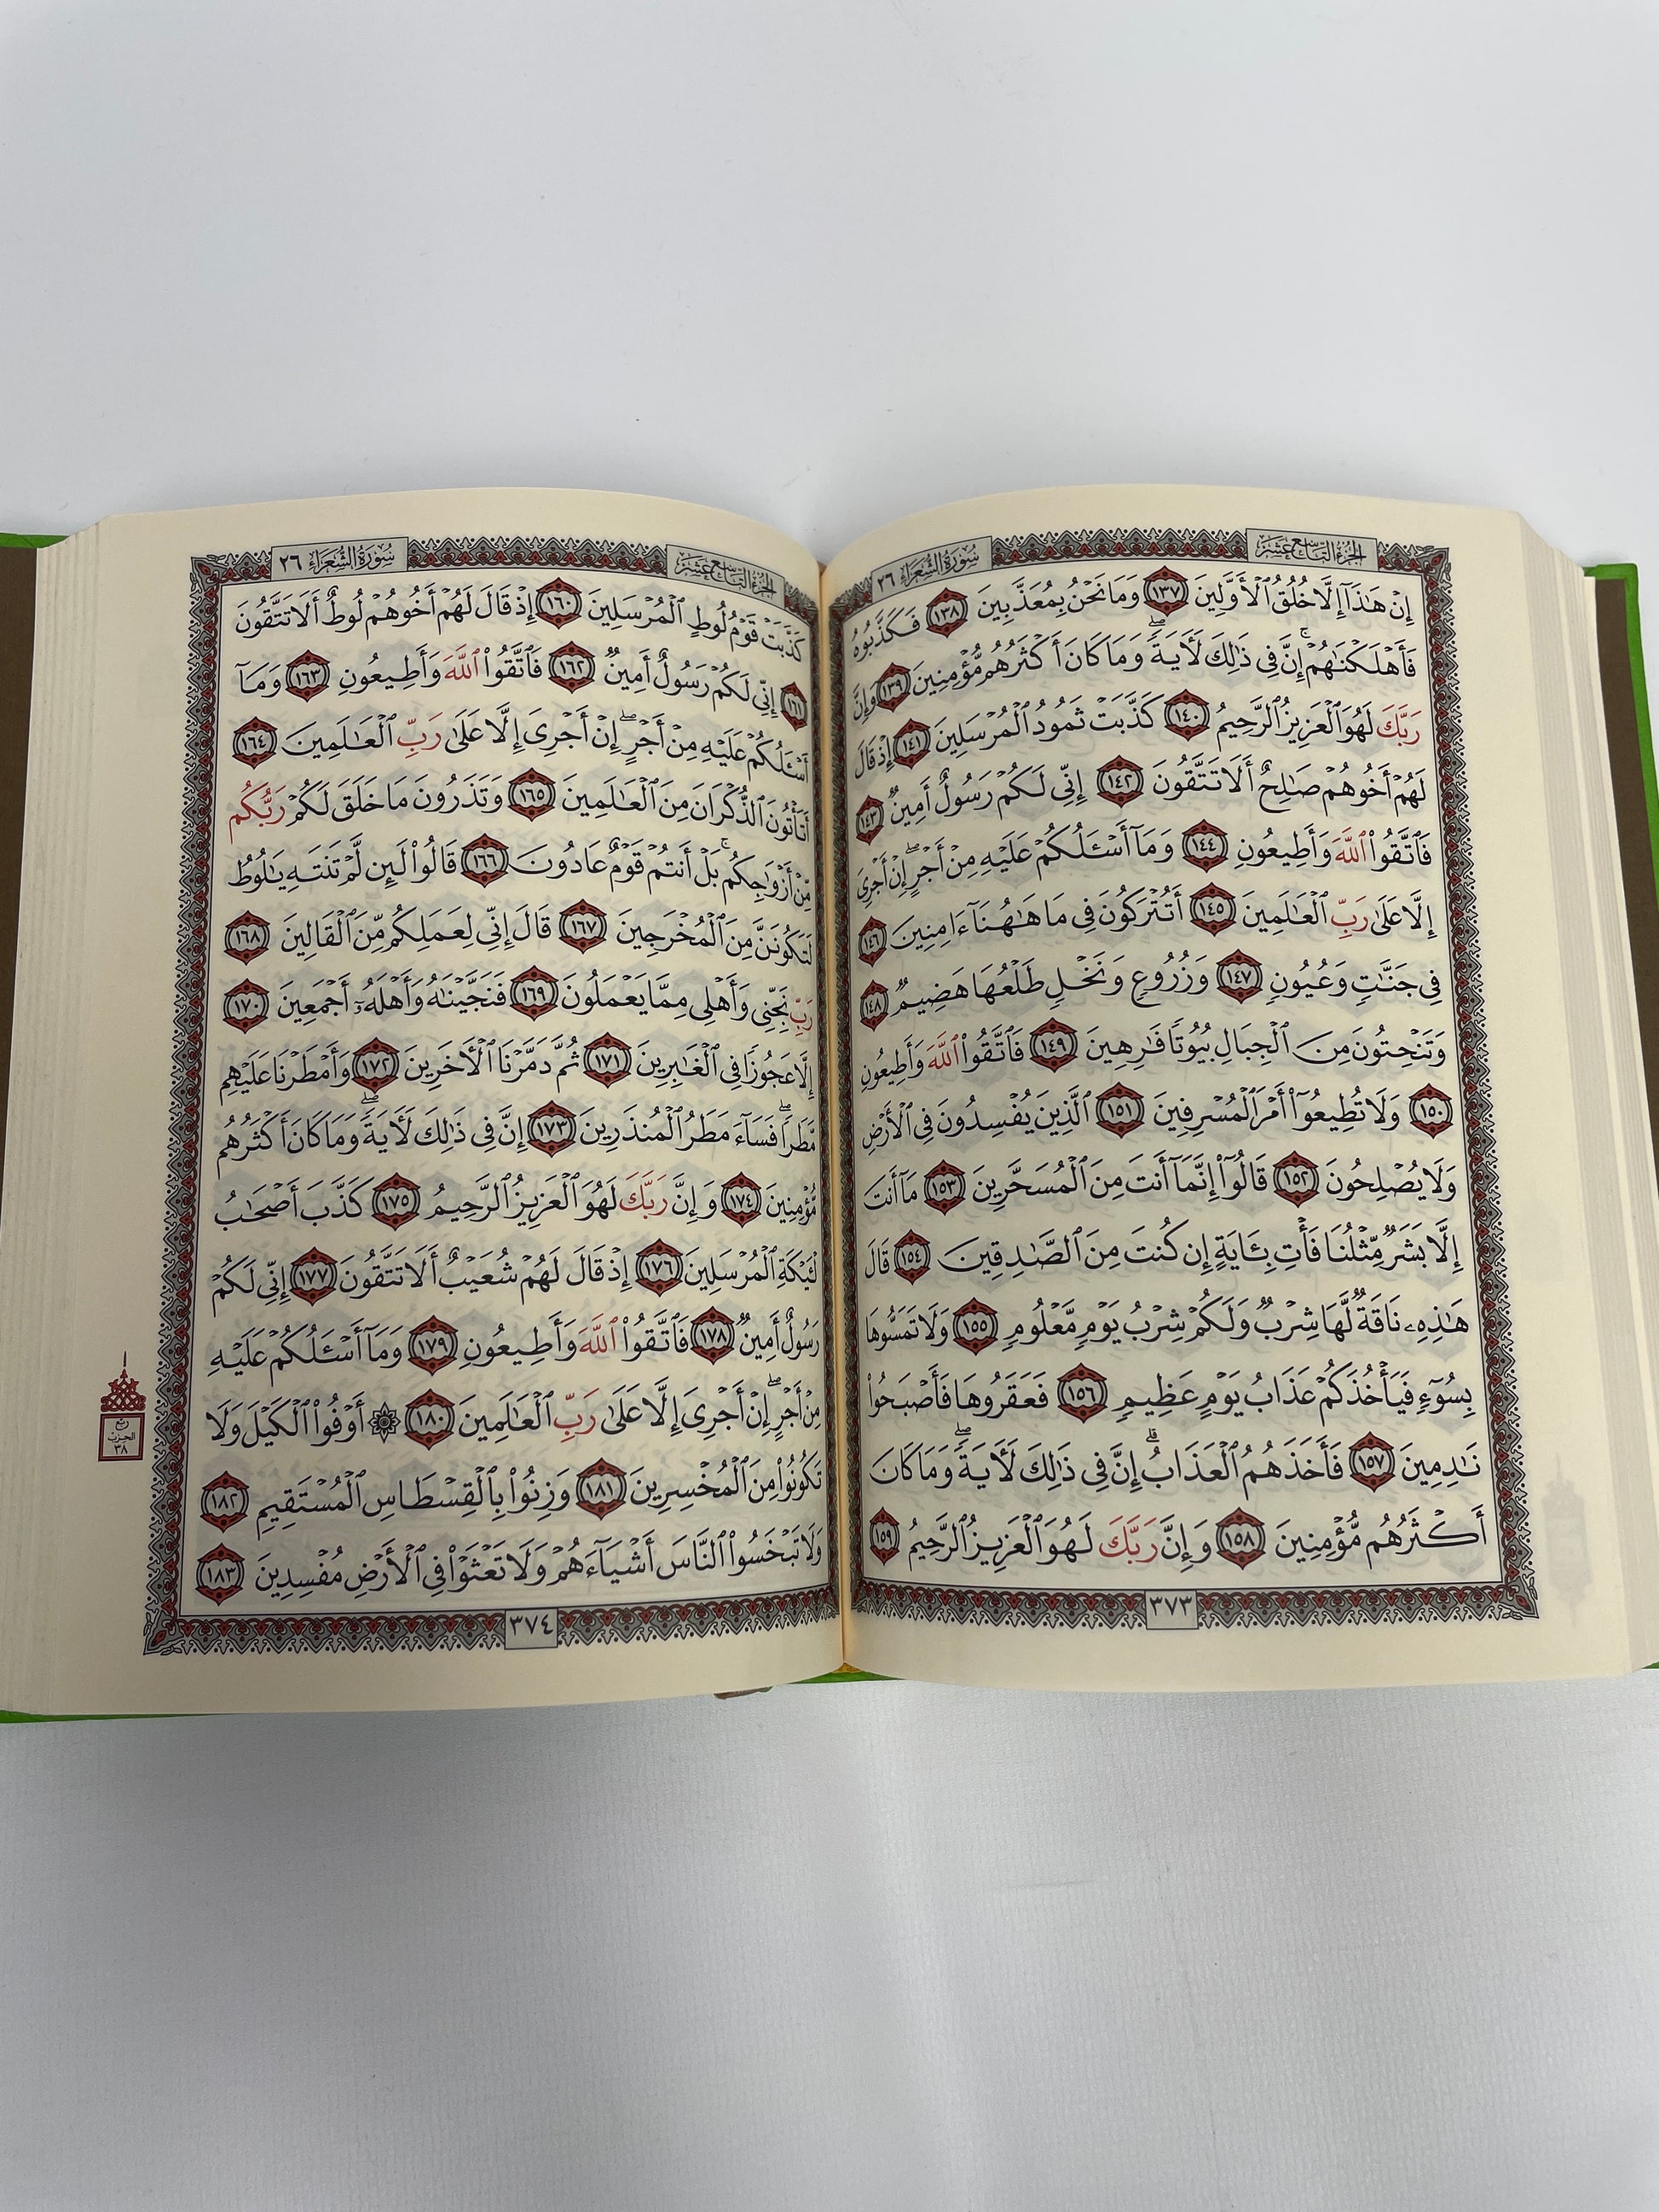 الجزء التاسع عشر
سورة الشعراء ٢٦
إِنْ هَٰذَآ إِلَّا خُلُقُ ٱلْأَوَّلِينَ ١٣٧ وَمَا نَحْنُ بِمُعَذَّبِينَ ١٣٨ فَكَذَّبُوهُ
فَأَهْلَكْنَٰهُمْ ۗ إِنَّ فِى ذَٰلِكَ لَءَايَةً ۖ وَمَا كَانَ أَكْثَرُهُم مُّؤْمِنِينَ ١٣٩ وَإِنَّ
رَبَّكَ لَهُوَ ٱلْعَزِيزُ ٱلرَّحِيمُ ١٤٠ كَذَّبَتْ ثَمُودُ ٱلْمُرْسَلِينَ ١٤١ إِذْ قَالَ
لَهُمْ أَخُوهُمْ صَٰلِحٌ أَلَا تَتَّقُونَ ١٤٢ إِنِّى لَكُمْ رَسُولٌ أَمِينٌ ١٤٣
فَٱتَّقُوا۟ ٱللَّهَ وَأَطِيعُونِ ١٤٤ وَمَآ أَسْـَٔلُكُمْ عَلَيْهِ مِنْ أَجْرٍ ۖ إِنْ أَجْرِىَ
إِلَّا عَلَىٰ رَبِّ ٱلْعَٰلَمِينَ ١٤٥ أَتُتْرَكُونَ فِى مَا هَٰهُنَآ ءَامِنِينَ ١٤٦
فِى جَنَّٰتٍ وَعُيُونٍ ١٤٧ وَزُرُوعٍ وَنَخْلٍ طَلْعُهَا هَضِيمٌ ١٤٨
وَتَنْحِتُونَ مِنَ ٱلْجِبَالِ بُيُوتًا فَٰرِهِينَ ١٤٩ فَٱتَّقُوا۟ ٱللَّهَ وَأَطِيعُونِ
١٥٠ وَلَا تُطِيعُوٓا۟ أَمْرَ ٱلْمُسْرِفِينَ ١٥١ ٱلَّذِينَ يُفْسِدُونَ فِى ٱلْأَرْضِ
وَلَا يُصْلِحُونَ ١٥٢ قَالُوٓا۟ إِنَّمَآ أَنتَ مِنَ ٱلْمُسَحَّرِينَ ١٥٣ مَآ أَنتَ
إِلَّا بَشَرٌ مِّثْلُنَا فَأْتِ بِـَٔايَةٍ إِن كُنتَ مِنَ ٱلصَّٰدِقِينَ ١٥٤ قَالَ
هَٰذِهِۦ نَاقَةٌ لَّهَا شِرْبٌ وَلَكُمْ شِرْبُ يَوْمٍ مَّعْلُومٍ ١٥٥ وَلَا تَمَسُّوهَا
بِسُوٓءٍ فَيَأْخُذَكُمْ عَذَابُ يَوْمٍ عَظِيمٍ ١٥٦ فَعَقَرُوهَا فَأَصْبَحُوا۟
نَٰدِمِينَ ١٥٧ فَأَخَذَهُمُ ٱلْعَذَابُ ۗ إِنَّ فِى ذَٰلِكَ لَءَايَةً ۖ وَمَا كَانَ
أَكْثَرُهُم مُّؤْمِنِينَ ١٥٨ وَإِنَّ رَبَّكَ لَهُوَ ٱلْعَزِيزُ ٱلرَّحِيمُ ١٥٩
٣٧٣
الجزء التاسع عشر
سورة الشعراء ٢٦
كَذَّبَتْ قَوْمُ لُوطٍ ٱلْمُرْسَلِينَ ١٦٠ إِذْ قَالَ لَهُمْ أَخُوهُمْ لُوطٌ أَلَا تَتَّقُونَ
١٦١ إِنِّى لَكُمْ رَسُولٌ أَمِينٌ ١٦٢ فَٱتَّقُوا۟ ٱللَّهَ وَأَطِيعُونِ ١٦٣ وَمَآ
أَسْـَٔلُكُمْ عَلَيْهِ مِنْ أَجْرٍ ۖ إِنْ أَجْرِىَ إِلَّا عَلَىٰ رَبِّ ٱلْعَٰلَمِينَ ١٦٤
أَتَأْتُونَ ٱلذُّكْرَانَ مِنَ ٱلْعَٰلَمِينَ ١٦٥ وَتَذَرُونَ مَا خَلَقَ لَكُمْ رَبُّكُم
مِّنْ أَزْوَٰجِكُم ۚ بَلْ أَنتُمْ قَوْمٌ عَادُونَ ١٦٦ قَالُوا۟ لَئِن لَّمْ تَنتَهِ يَٰلُوطُ
لَتَكُونَنَّ مِنَ ٱلْمُخْرَجِينَ ١٦٧ قَالَ إِنِّى لِعَمَلِكُم مِّنَ ٱلْقَالِينَ ١٦٨
رَبِّ نَجِّنِى وَأَهْلِى مِمَّا يَعْمَلُونَ ١٦٩ فَنَجَّيْنَٰهُ وَأَهْلَهُۥٓ أَجْمَعِينَ ١٧٠
إِلَّا عَجُوزًا فِى ٱلْغَٰبِرِينَ ١٧١ ثُمَّ دَمَّرْنَا ٱلْءَاخَرِينَ ١٧٢ وَأَمْطَرْنَا عَلَيْهِم
مَّطَرًا ۖ فَسَآءَ مَطَرُ ٱلْمُنذَرِينَ ١٧٣ إِنَّ فِى ذَٰلِكَ لَءَايَةً ۖ وَمَا كَانَ أَكْثَرُهُم
مُّؤْمِنِينَ ١٧٤ وَإِنَّ رَبَّكَ لَهُوَ ٱلْعَزِيزُ ٱلرَّحِيمُ ١٧٥ كَذَّبَ أَصْحَٰبُ
لْـَٔيْكَةِ ٱلْمُرْسَلِينَ ١٧٦ إِذْ قَالَ لَهُمْ شُعَيْبٌ أَلَا تَتَّقُونَ ١٧٧ إِنِّى لَكُمْ
رَسُولٌ أَمِينٌ ١٧٨ فَٱتَّقُوا۟ ٱللَّهَ وَأَطِيعُونِ ١٧٩ وَمَآ أَسْـَٔلُكُمْ عَلَيْهِ
مِنْ أَجْرٍ ۖ إِنْ أَجْرِىَ إِلَّا عَلَىٰ رَبِّ ٱلْعَٰلَمِينَ ١٨٠ ۞ أَوْفُوا۟ ٱلْكَيْلَ وَلَا
تَكُونُوا۟ مِنَ ٱلْمُخْسِرِينَ ١٨١ وَزِنُوا۟ بِٱلْقِسْطَاسِ ٱلْمُسْتَقِيمِ ١٨٢
وَلَا تَبْخَسُوا۟ ٱلنَّاسَ أَشْيَآءَهُمْ وَلَا تَعْثَوْا۟ فِى ٱلْأَرْضِ مُفْسِدِينَ ١٨٣
٣٧٤
ربع
الحزب
٣٨